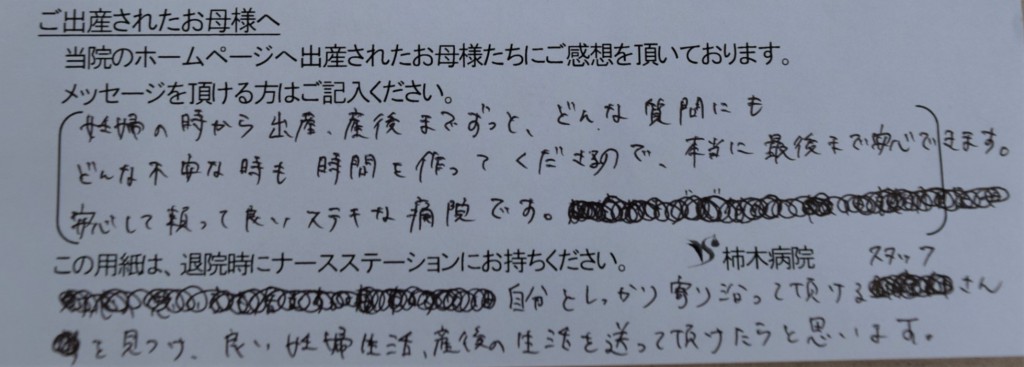 ご出産されたお母様へ
当院のホームページへ出産されたお母様たちにご感想を頂いております。
メッセージを頂ける方はご記入ください。
妊婦の時から出産、産後までずっと、どんな質問にも
どんな不安な時も時間を作ってくださるので、本当に最後まで安心できます。
安心して頼って良いステキな病院です。
この用紙は、退院時にナースステーションにお持ちください。 柿木病院 スタッフ
自分としっかり寄り沿って頂ける さん
を見つけ、良い妊婦生活、産後の生活を送って頂けたらと思います。